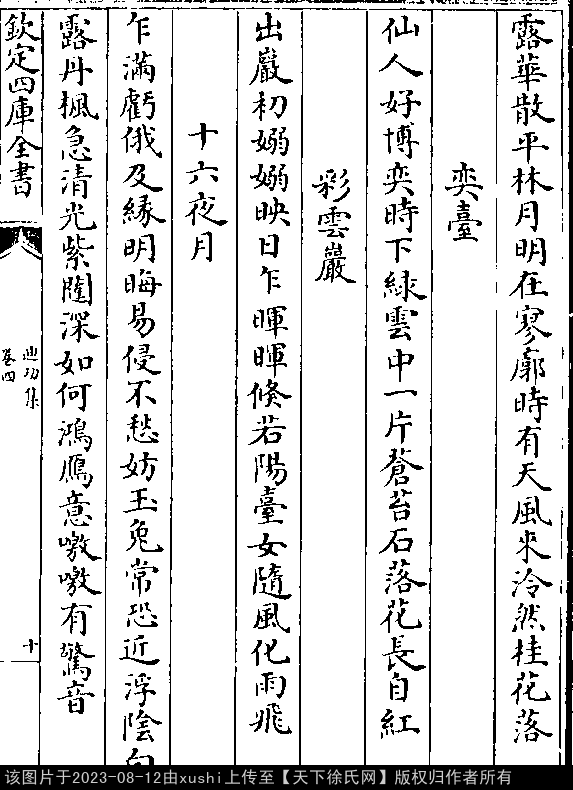 露華散平林月明在寥廓時有天風來泠然桂花落
奕臺
仙人好博奕時下綠雲中一片蒼苔石落花長自紅
彩雲巖
出巖初嫋嫋映日乍暉暉倏若陽臺女隨風化雨飛
十六夜月
乍滿虧俄及縁明晦易侵不愁妨玉兔常恐近浮陰白
露丹楓急清光紫閣深如何鴻鴈意嗷嗷有驚音
欽定四庫全書
迪功集
卷四
十
该图片于2023-08-12由xushi上传至【天下徐氏网】版权归作者所有